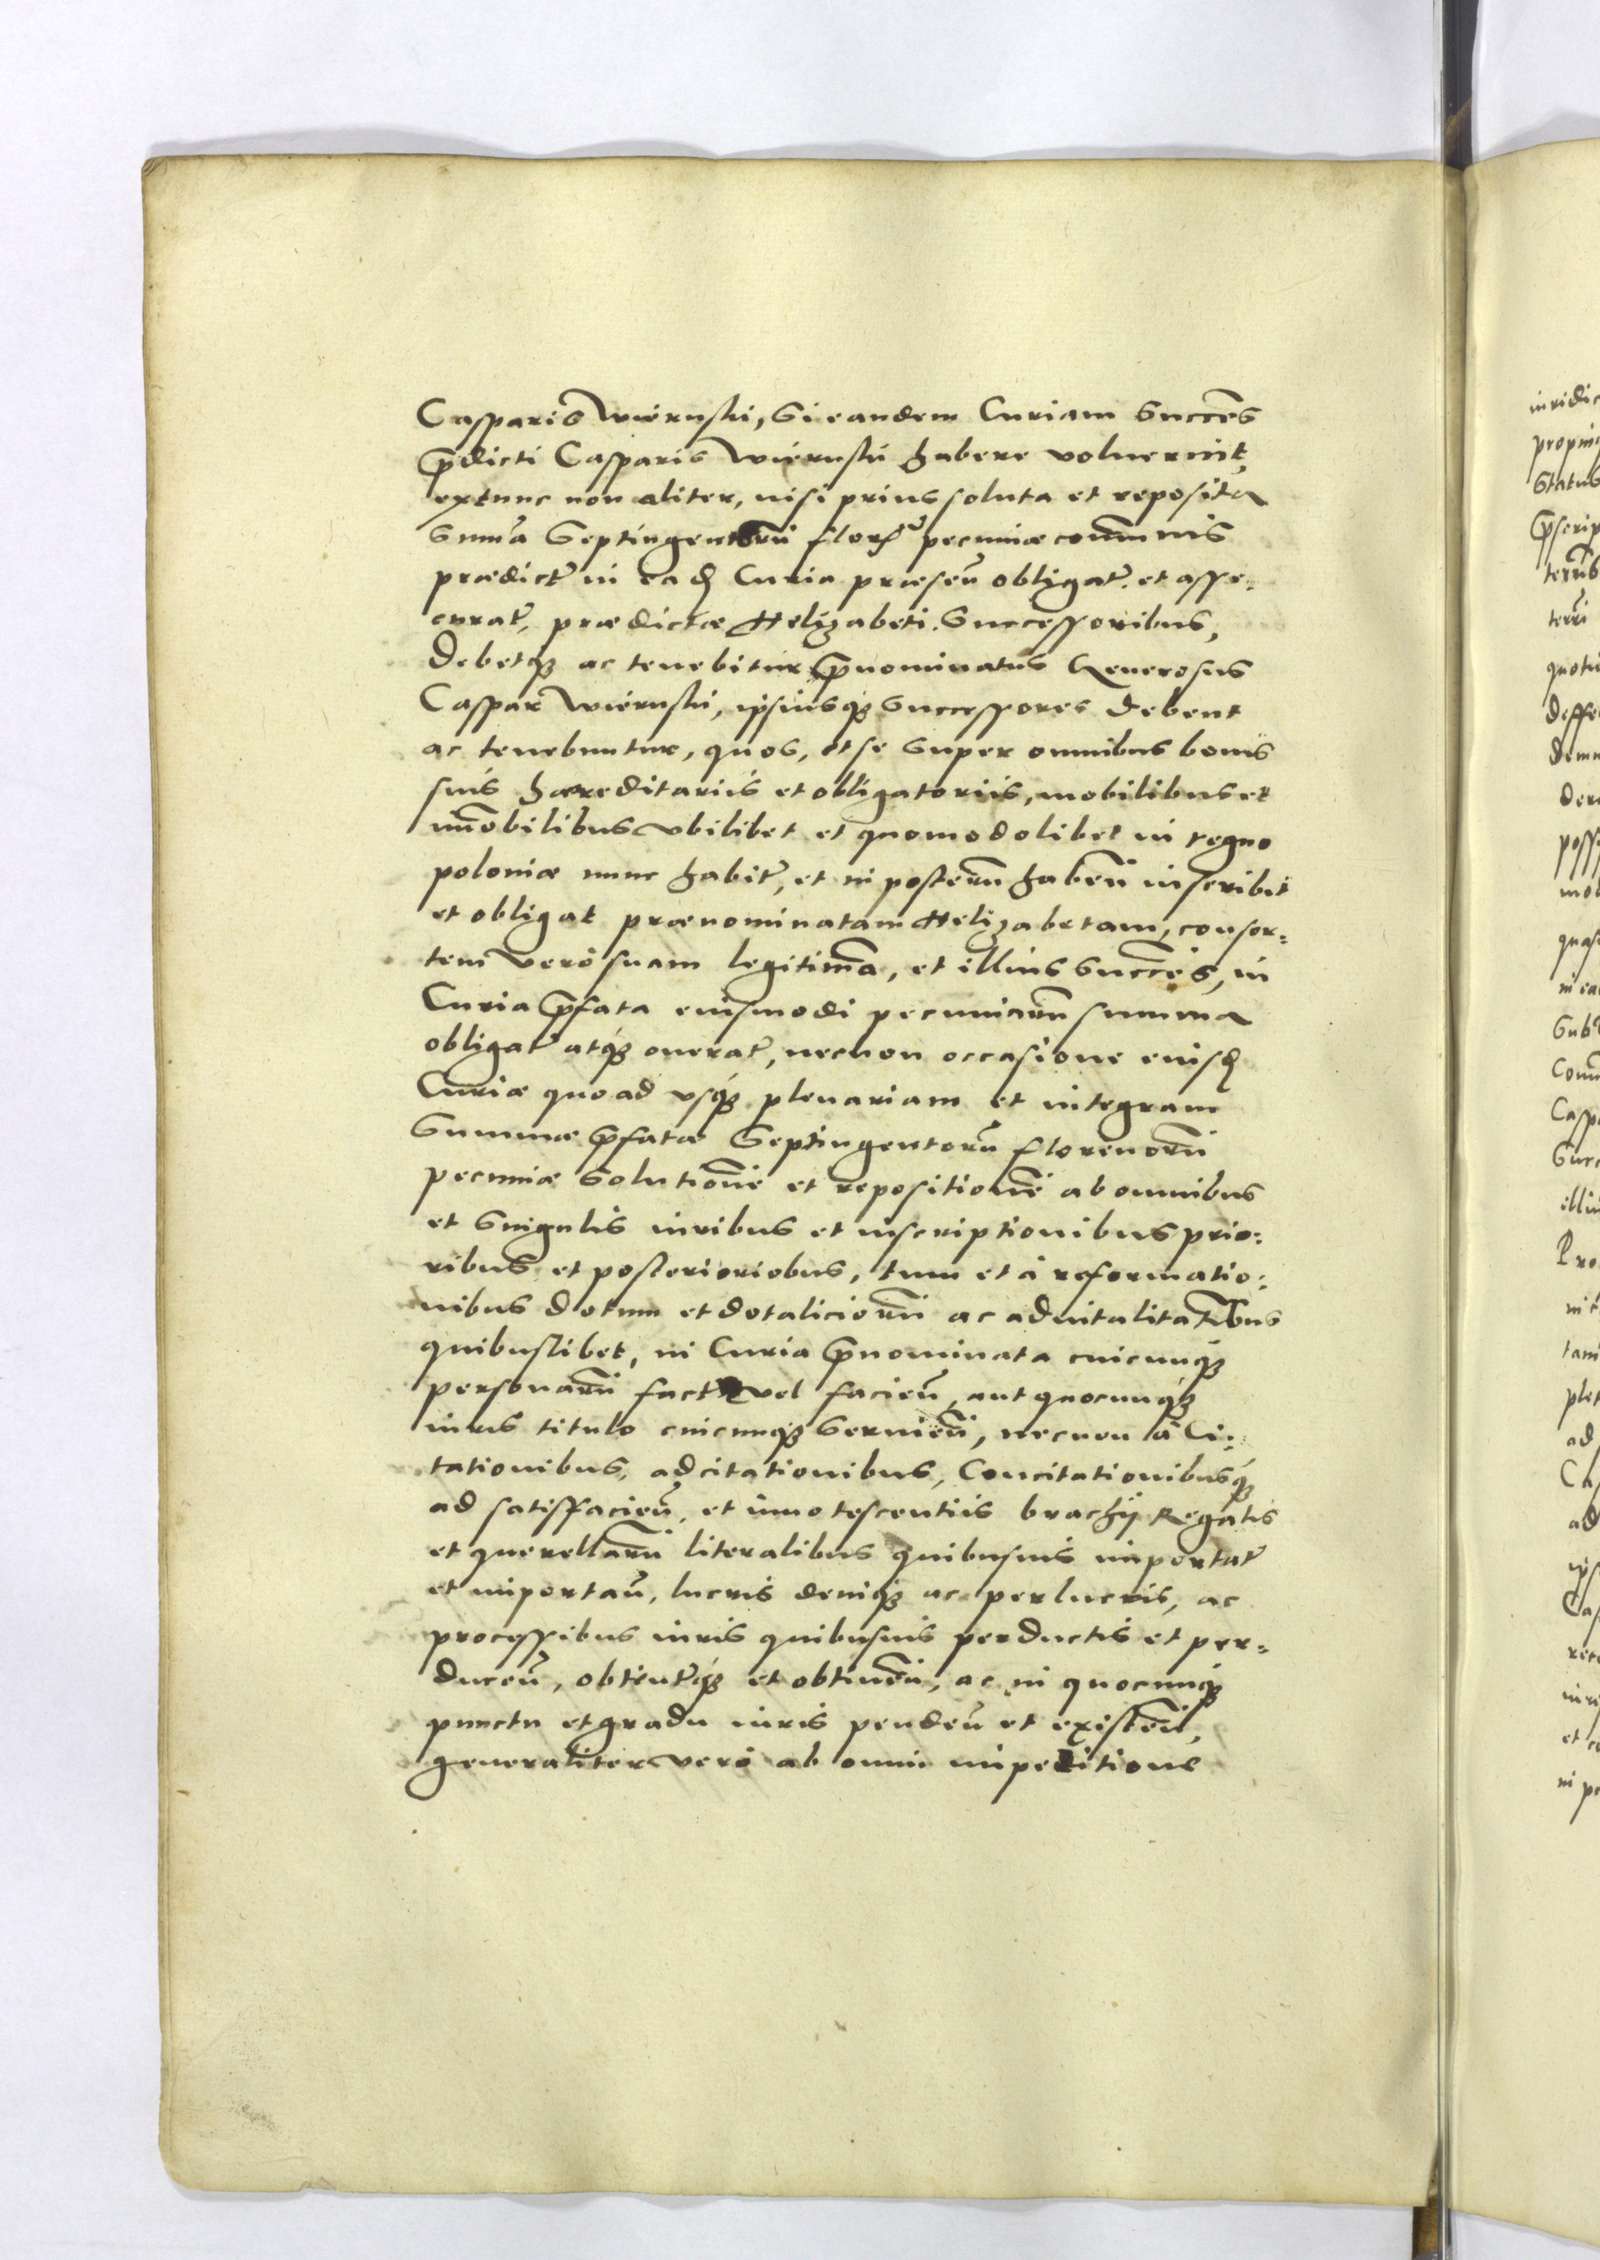 Casparis Wiernski, Si eandem Curiam Succes̃
p̃dicti Casparis Wiernski habere voluerint,
extunc non aliter, nisi prius soluta et reposita
Summa Septingentorũ flor̃ pecuniæ com̃unis
prædict̃ in ead̃ Curia præseñ obligat̃ et asse:
curat̃, prædictæ Helizabeti Successoribus,
Debetq̃ ac tenebitur p̃nominatus Generosus
Caspar Wiernski, ipsiusq̃ Successores debent
ac tenebuntur, quos, et se super omnibus bonis
suis hæreditariis et obligatoriis, mobilibus et
im̃obilibus vbilibet et quomodolibet in regno
poloniæ nunc habit̃, et in posterũ habeñ inscribit
et obligat prænominatam Helizabetam, consor:
tem vero suam legitimã, et illius Succes̃, in
Curia p̃fata eiusmodi pecuniarũ summa
obligat̃ atq̃ onerat̃, necnon occasione eiusd̃
Curiæ quo ad vsq̃ plenariam et integram
Summæ p̃fatæ Septingentorũ florenorũ
pecuniæ Solutionẽ et repositionẽ ab omnibus
et Singulis iuribus et inscriptionibus prio:
ribus et posterioriobus, tum et à reformatio:
nibus dotum et dotaliciorũ ac aduitalitatĩbus
quibuslibet, in Curia p̃nominata cuicunq̃
personarũ fact̃ vel facieñ, aut quocunq̃
iuris titulo cuicunq̃ Seruieñ, necnon à Ci:
tationibus, adcitationibus, Concitationibusq̃
ad satisfacieñ, et innotescentiis brachij Regalis
et querellarũ literalibus quibusuis importat̃
et importañ, lucris deniq̃ ac perlucris, ac
processibus iuris quibusuis perductis et per:
duceñ, obtentq̃ et obtineñ, ac in quocunq̃
punctu et gradu iuris pendeñ et existeñ,
generaliter vero ab omni impeditione